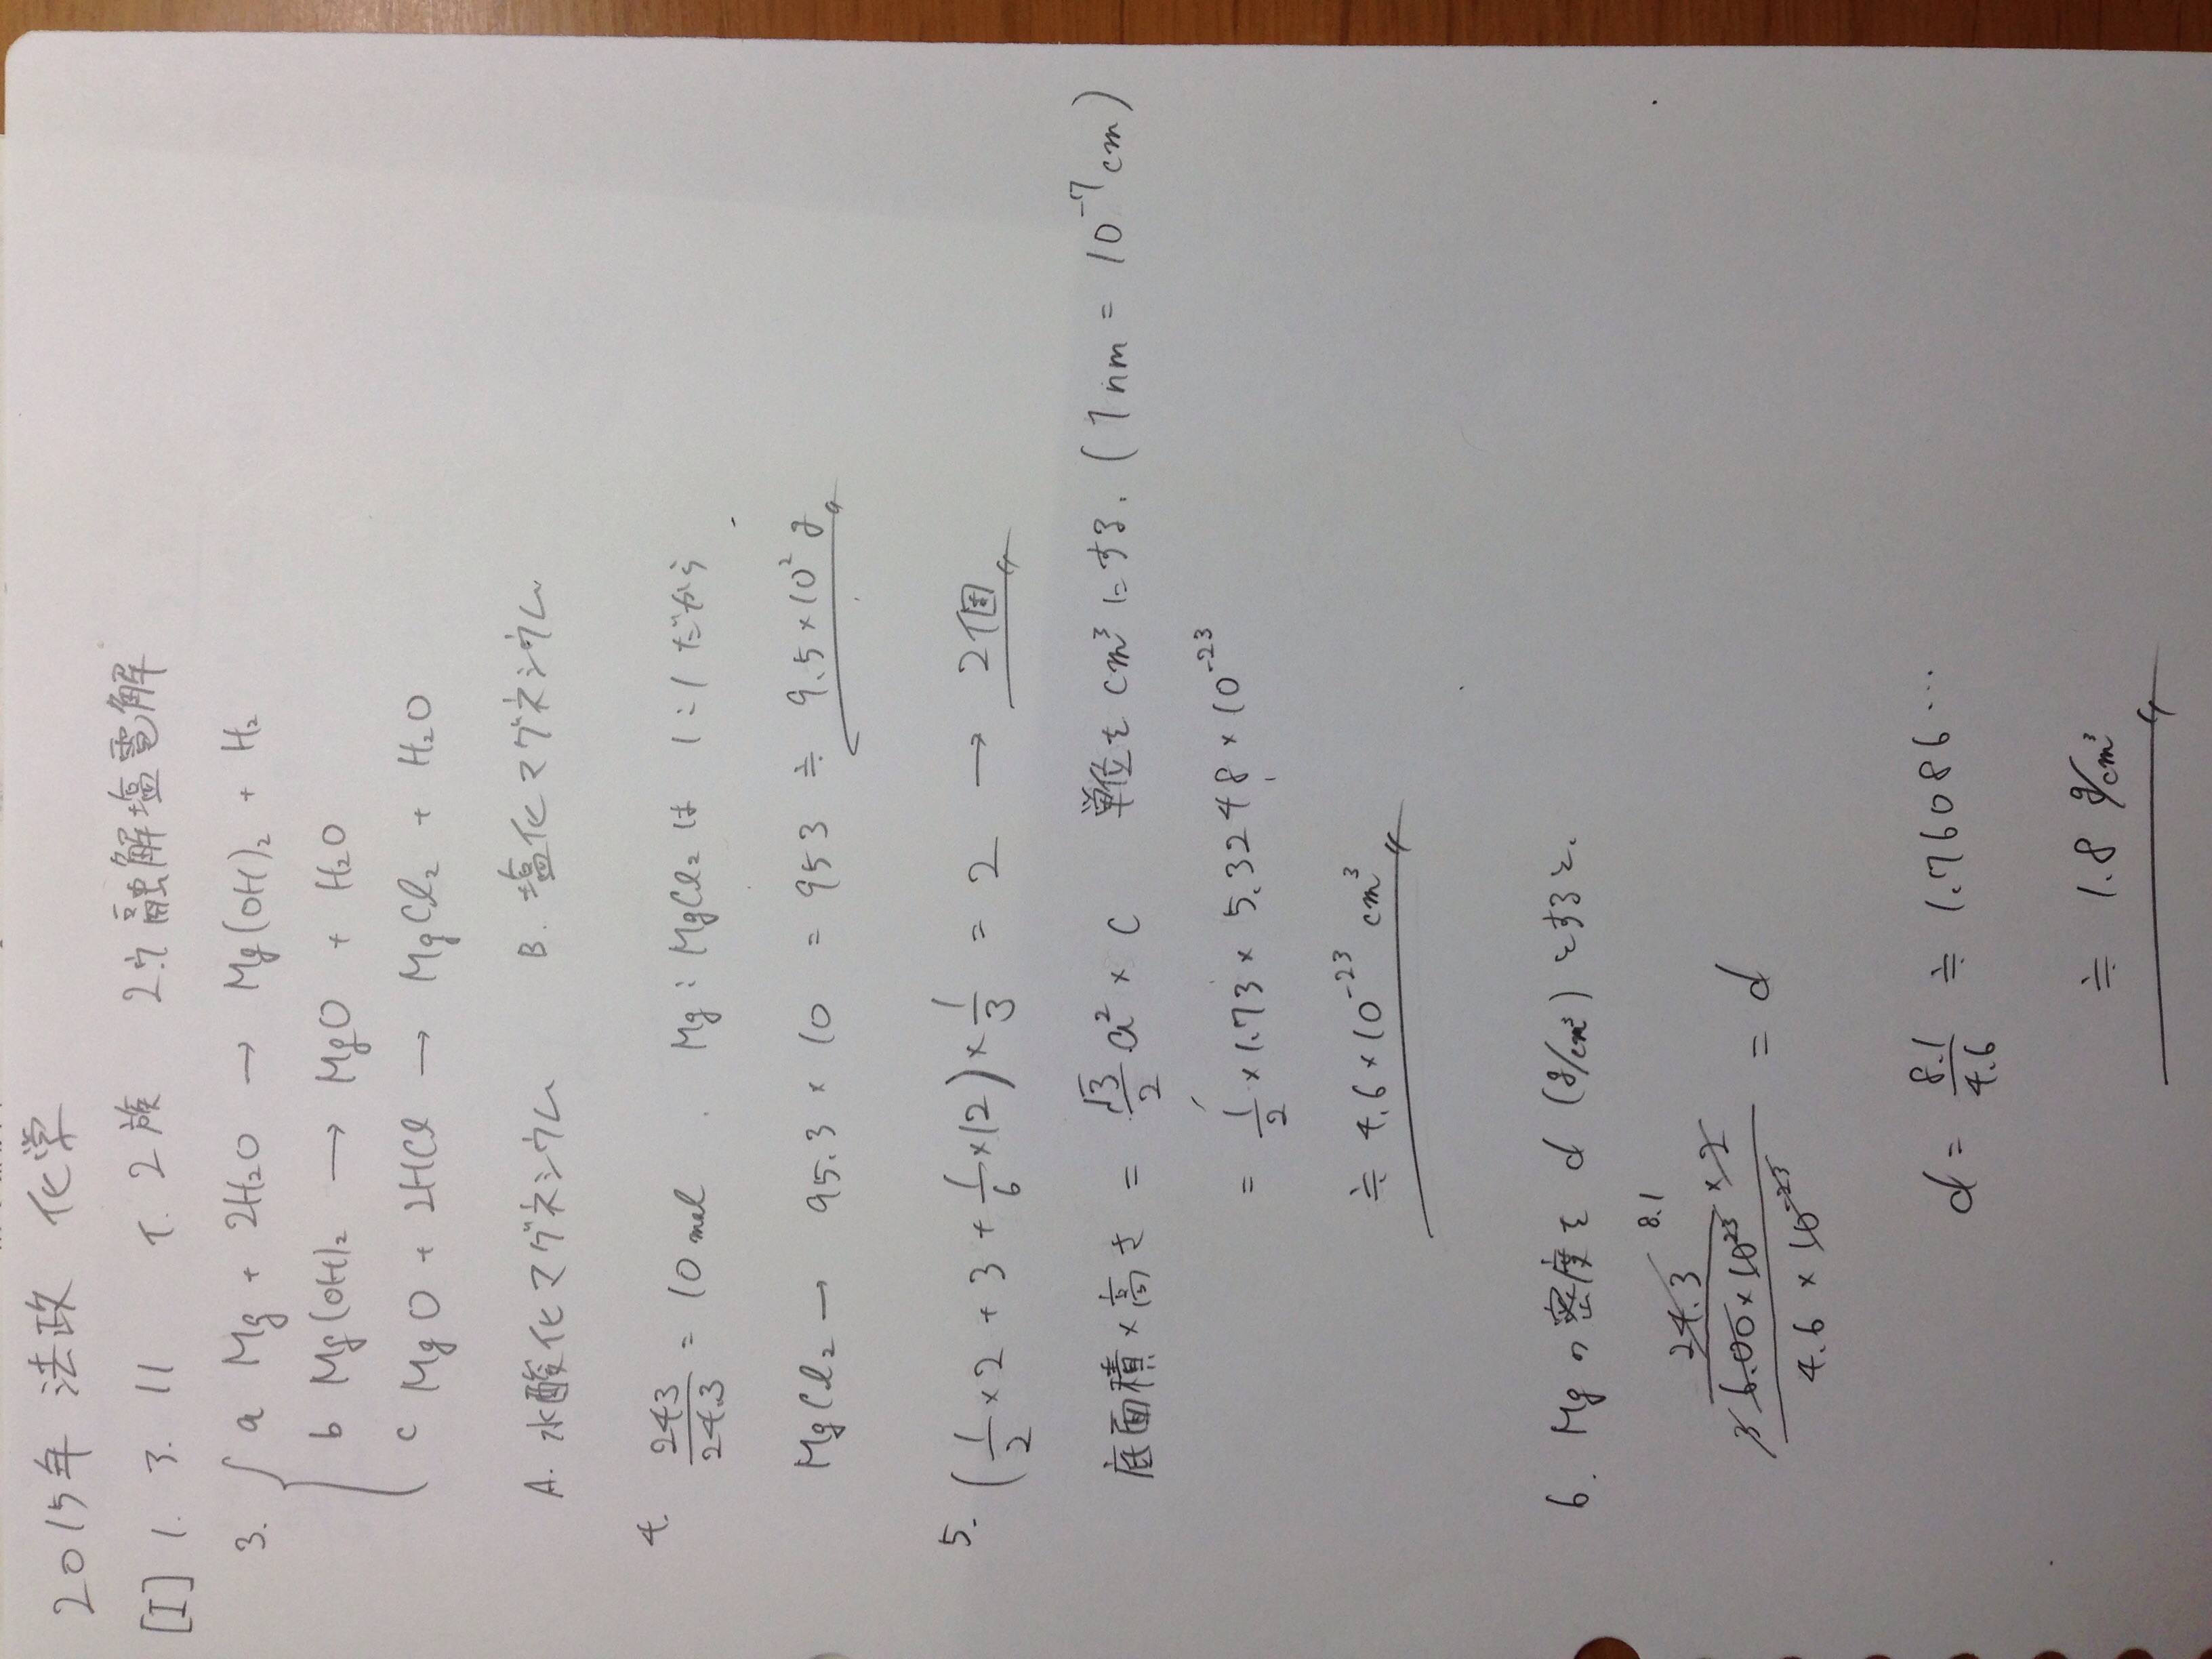 2015年 法政 化学
[I] 1. 3. 11 イ. 2族 2. 融解塩電解
3. a Mg + 2H₂O → Mg(OH)₂ + H₂
b Mg(OH)₂ → MgO + H₂O
c MgO + 2HCl → MgCl₂ + H₂O
A. 水酸化マグネシウム B. 塩化マグネシウム
4. 243/24.3 = 10 mol Mg : MgCl₂ は 1:1 だから
MgCl₂ → 95.3 × 10 = 953 ≒ 9.5×10² g
5. (1/2 ×2 + 3 + 1/6 ×12) × 1/3 = 2 → 2個
底面積×高さ = √3/2 a² × c 単位を cm³ にする. (1nm = 10⁻⁷ cm)
= 1/2 × 1.73 × 5.3248 × 10⁻²³
≒ 4.6 × 10⁻²³ cm³
6. Mg の密度を d (g/cm³) とすると.
8.1
24.3/6.00×10²³ ×2 / 4.6 × 10⁻²³ = d
d = 8.1/4.6 ≒ 1.76086…
≒ 1.8 g/cm³